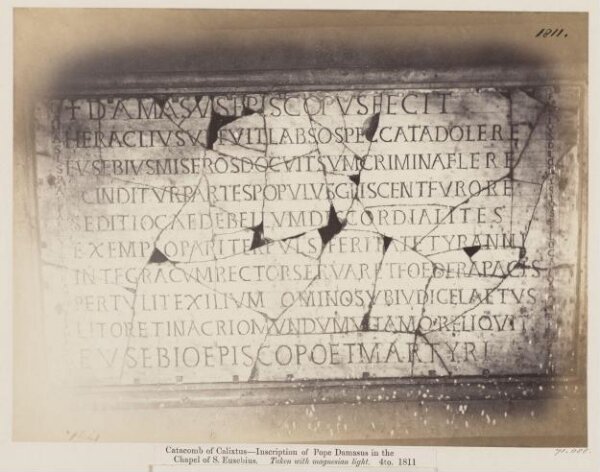 1811.
† DAMASVS EPISCOPVS FECIT
HERACLIVS VETVIT LABSOS PECCATA DOLERE
EVSEBIVS MISEROS DOCVIT SVA CRIMINA FLERE
SCINDITVR PARTES POPVLVS GLISCENTE FVRORE
SEDITIO CAEDE BELLVM DISCORDIA LITES
EXEMPLO PARITER PVLSI FERITATE TYRANNI
INTEGRA CVM RECTOR SERVARET FOEDERA PACIS
PERTVLIT EXILIVM OMINO SVB IVDICE LAETVS
LITORE TINACRIO MVNDVM VITAMQ RELIQVIT
EVSEBIO EPISCOPO ET MARTYRI
Catacomb of Calixtus—Inscription of Pope Damasus in the
Chapel of S. Eusebius. Taken with magnesian light. 4to. 1811